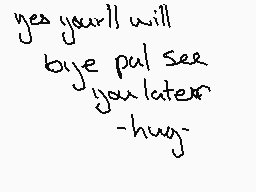 yes your'll will
bye pal see
you later
-hug-